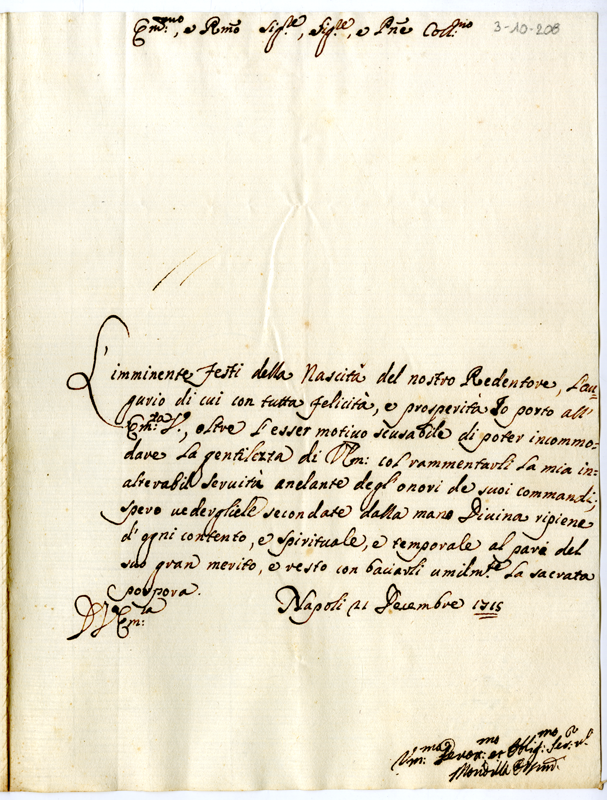 Em:mo, e Rmo Sig.re, Sig.re, e Pne Coll.mo
3-10-208
L'imminente Festi della Nascità del nostro Redentore, L'au-
gurio di cui con tutta felicità, e prosperità Io porto all'
Em:za V., oltre l'esser motivo scusabile di poter incommo-
dare la gentilezza di V Em: col rammentarli la mia in-
alterabil servità anelante degl'onori de suoi commandi,
spero vedergliele secondate dalla mano Divina ripiene
d'ogni contento, e spirituale, e temporale al pare del
suo gran merito, e resto con baciarli umilm.te la sacrata
porpora.
Napoli 21 Decembre 1715
D V Em:za
Um:mo Devot:mo et Oblig:mo Ser:re